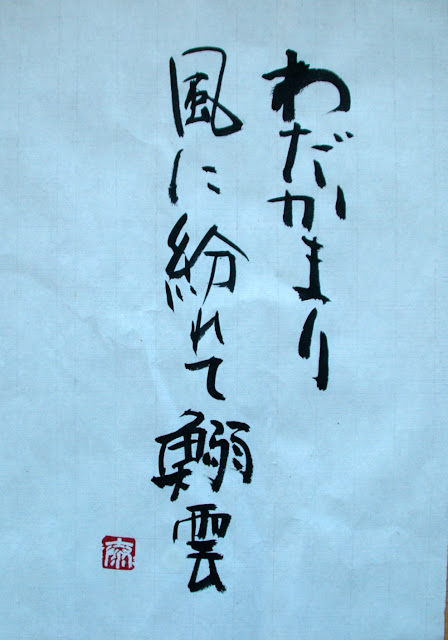 わだかまり
風に紛れて鰯雲